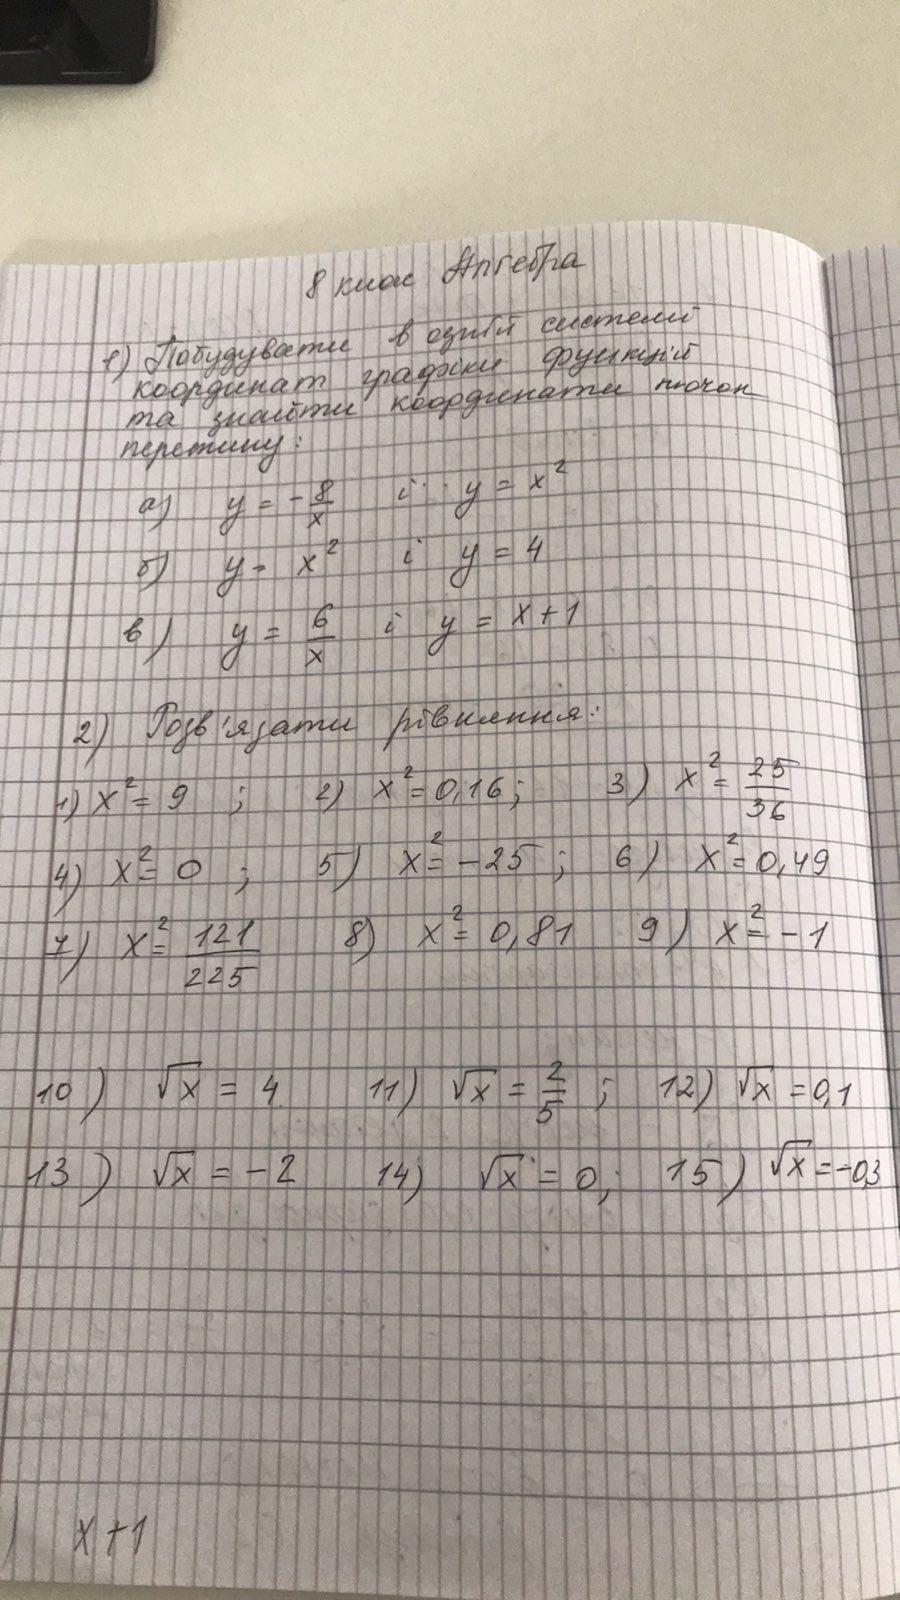 8 клас Алгебра
1) Побудувати в одній системі
координат графіки функцій
та знайти координати точок
перетину:
а) y = -8/x і y = x²
б) y = x² і y = 4
в) y = 6/x і y = x+1
2) Розв'язати рівняння:
1) x² = 9 ; 2) x² = 0,16; 3) x² = 25/36
4) x² = 0 ; 5) x² = -25 ; 6) x² = 0,49
7) x² = 121/225 8) x² = 0,81 9) x² = -1
10) √x = 4 11) √x = 2/5 ; 12) √x = 0,1
13) √x = -2 14) √x = 0; 15) √x = -0,3
x+1